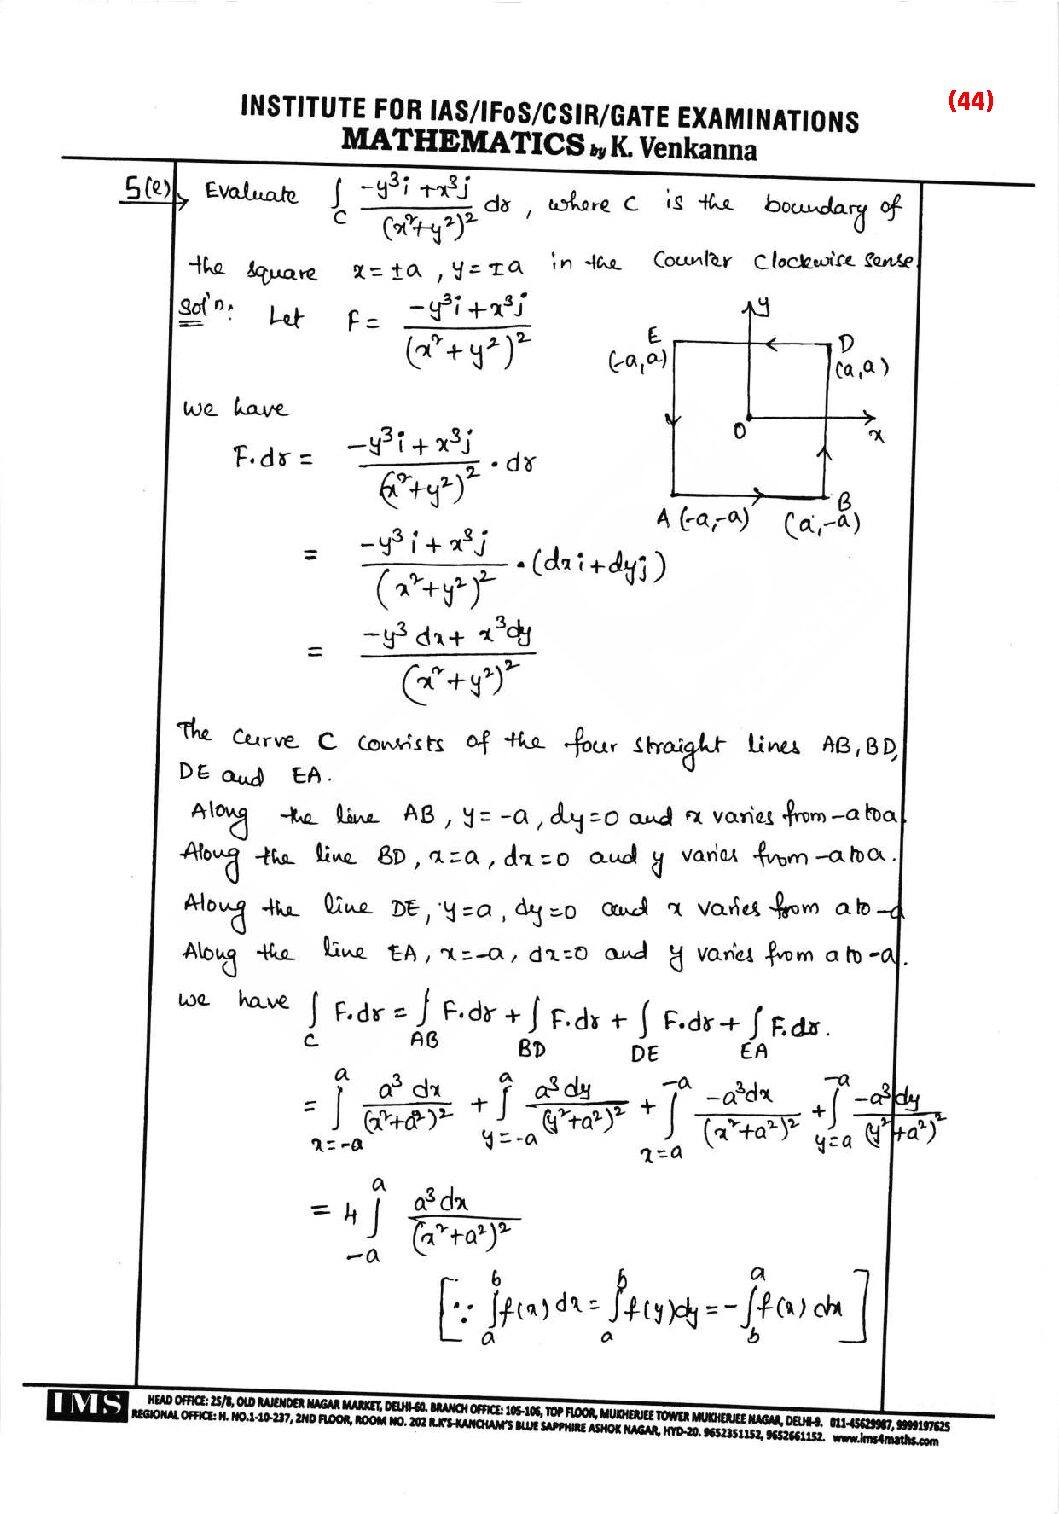 (44)
INSTITUTE FOR IAS/IFoS/CSIR/GATE EXAMINATIONS
MATHEMATICS by K. Venkanna
5(e), Evaluate ∫_C (-y³i + x³j)/(x²+y²)² dr, where C is the boundary of
the square x = ±a, y = ±a in the Counter Clockwise Sense
Sol'n: Let F = (-y³i + x³j)/(x²+y²)²
y
E
(-a,a)
D
(a,a)
O
x
A (-a,-a)
B
(a,-a)
we have
F.dr = (-y³i + x³j)/(x²+y²)² . dr
= (-y³i + x³j)/(x²+y²)² . (dxi + dyj)
= (-y³ dx + x³dy)/(x²+y²)²
The Curve C consists of the four straight lines AB, BD,
DE and EA.
Along the line AB, y = -a, dy=0 and x varies from -a to a
Along the line BD, x=a, dx=0 and y varies from -a to a.
Along the line DE, y=a, dy=0 and x varies from a to -a
Along the line EA, x=-a, dx=0 and y varies from a to -a.
we have ∫_C F.dr = ∫_AB F.dr + ∫_BD F.dr + ∫_DE F.dr + ∫_EA F.dr.
= ∫_{x=-a}^{a} a³ dx/(x²+a²)² + ∫_{y=-a}^{a} a³dy/(y²+a²)² + ∫_{x=a}^{-a} -a³dx/(x²+a²)² + ∫_{y=a}^{-a} -a³dy/(y²+a²)²
= 4 ∫_{-a}^{a} a³dx/(x²+a²)²
[∵ ∫_a^b f(x)dx = ∫_a^b f(y)dy = -∫_b^a f(x) dx]
IMS
HEAD OFFICE: 25/8, OLD RAJENDER NAGAR MARKET, DELHI-60. BRANCH OFFICE: 105-106, TOP FLOOR, MUKHERJEE TOWER MUKHERJEE NAGAR, DELHI-9. 011-45629987, 9999197625
REGIONAL OFFICE: H. NO.1-10-237, 2ND FLOOR, ROOM NO. 202 R.K'S-KANCHAM'S BLUE SAPPHIRE ASHOK NAGAR, HYD-20. 9652351152, 9652661152. www.ims4maths.com